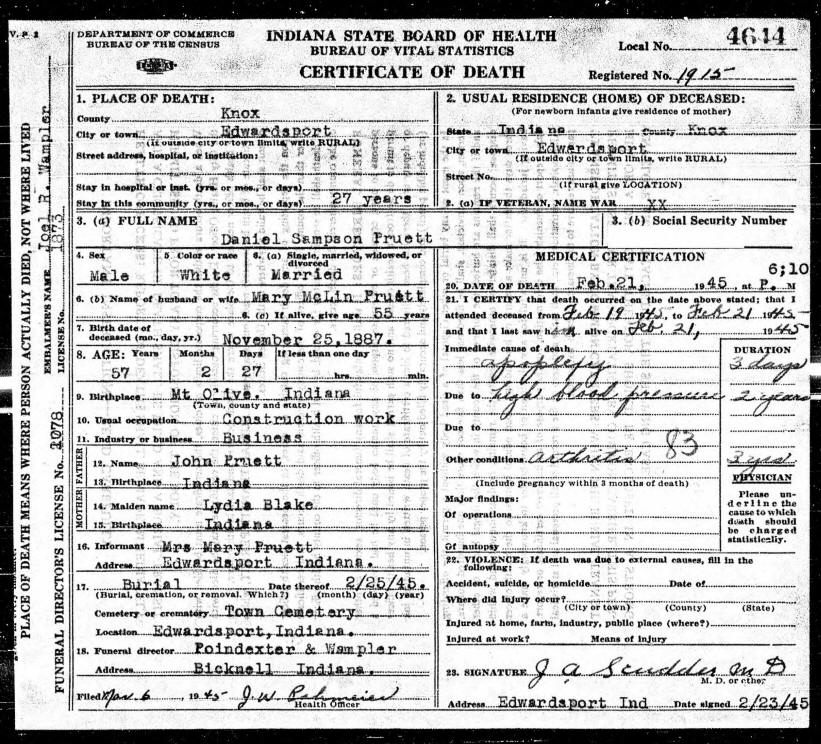 V. S. 2
DEPARTMENT OF COMMERCE
BUREAU OF THE CENSUS
INDIANA STATE BOARD OF HEALTH
BUREAU OF VITAL STATISTICS
CERTIFICATE OF DEATH
Local No. 4644
Registered No. 1915
PLACE OF DEATH MEANS WHERE PERSON ACTUALLY DIED, NOT WHERE LIVED
EMBALMER'S NAME Joel R. Wampler
LICENSE No. 1873
FUNERAL DIRECTOR'S LICENSE No. 1078
1. PLACE OF DEATH:
County Knox
City or town Edwardsport
(If outside city or town limits, write RURAL)
Street address, hospital, or institution:
Stay in hospital or inst. (yrs. or mos., or days)
Stay in this community (yrs. or mos., or days) 27 years
2. USUAL RESIDENCE (HOME) OF DECEASED:
(For newborn infants give residence of mother)
State Indiana County Knox
City or town Edwardsport
(If outside city or town limits, write RURAL)
Street No.
(If rural give LOCATION)
2. (a) IF VETERAN, NAME WAR XX
3. (a) FULL NAME
Daniel Sampson Pruett
3. (b) Social Security Number
4. Sex Male
5 Color or race White
6. (a) Single, married, widowed, or divorced Married
6. (b) Name of husband or wife Mary McLin Pruett
6. (c) If alive, give age 55 years
7. Birth date of deceased (mo., day, yr.) November 25, 1887.
8. AGE: Years Months Days If less than one day
57 2 27 hrs. min.
9. Birthplace Mt Olive. Indiana
(Town, county and state)
10. Usual occupation Construction work
11. Industry or business Business
FATHER
12. Name John Pruett
13. Birthplace Indiana
MOTHER
14. Maiden name Lydia Blake
15. Birthplace Indiana
16. Informant Mrs Mary Pruett
Address Edwardsport Indiana.
17. Burial Date thereof 2/25/45.
(Burial, cremation, or removal. Which?) (month) (day) (year)
Cemetery or crematory Town Cemetery
Location Edwardsport, Indiana.
18. Funeral director Poindexter & Wampler
Address Bicknell Indiana.
Filed Mar. 6, 1945 J. W.
Health Officer
MEDICAL CERTIFICATION
20. DATE OF DEATH Feb. 21, 1945, at 6;10 P. M
21. I CERTIFY that death occurred on the date above stated; that I
attended deceased from Feb 19 1945, to Feb 21 1945
and that I last saw him alive on Feb. 21, 1945
Immediate cause of death DURATION
apoplexy 3 days
Due to high blood pressure 2 years
Due to
83
Other conditions Arthritis 3 yrs
(Include pregnancy within 3 months of death)
PHYSICIAN
Please underline the cause to which death should be charged statistically.
Major findings:
Of operations
Of autopsy
22. VIOLENCE: If death was due to external causes, fill in the following:
Accident, suicide, or homicide Date of
Where did injury occur?
(City or town) (County) (State)
Injured at home, farm, industry, public place (where?)
Injured at work? Means of injury
23. SIGNATURE J A Scudder M D
M. D. or other
Address Edwardsport Ind Date signed 2/23/45